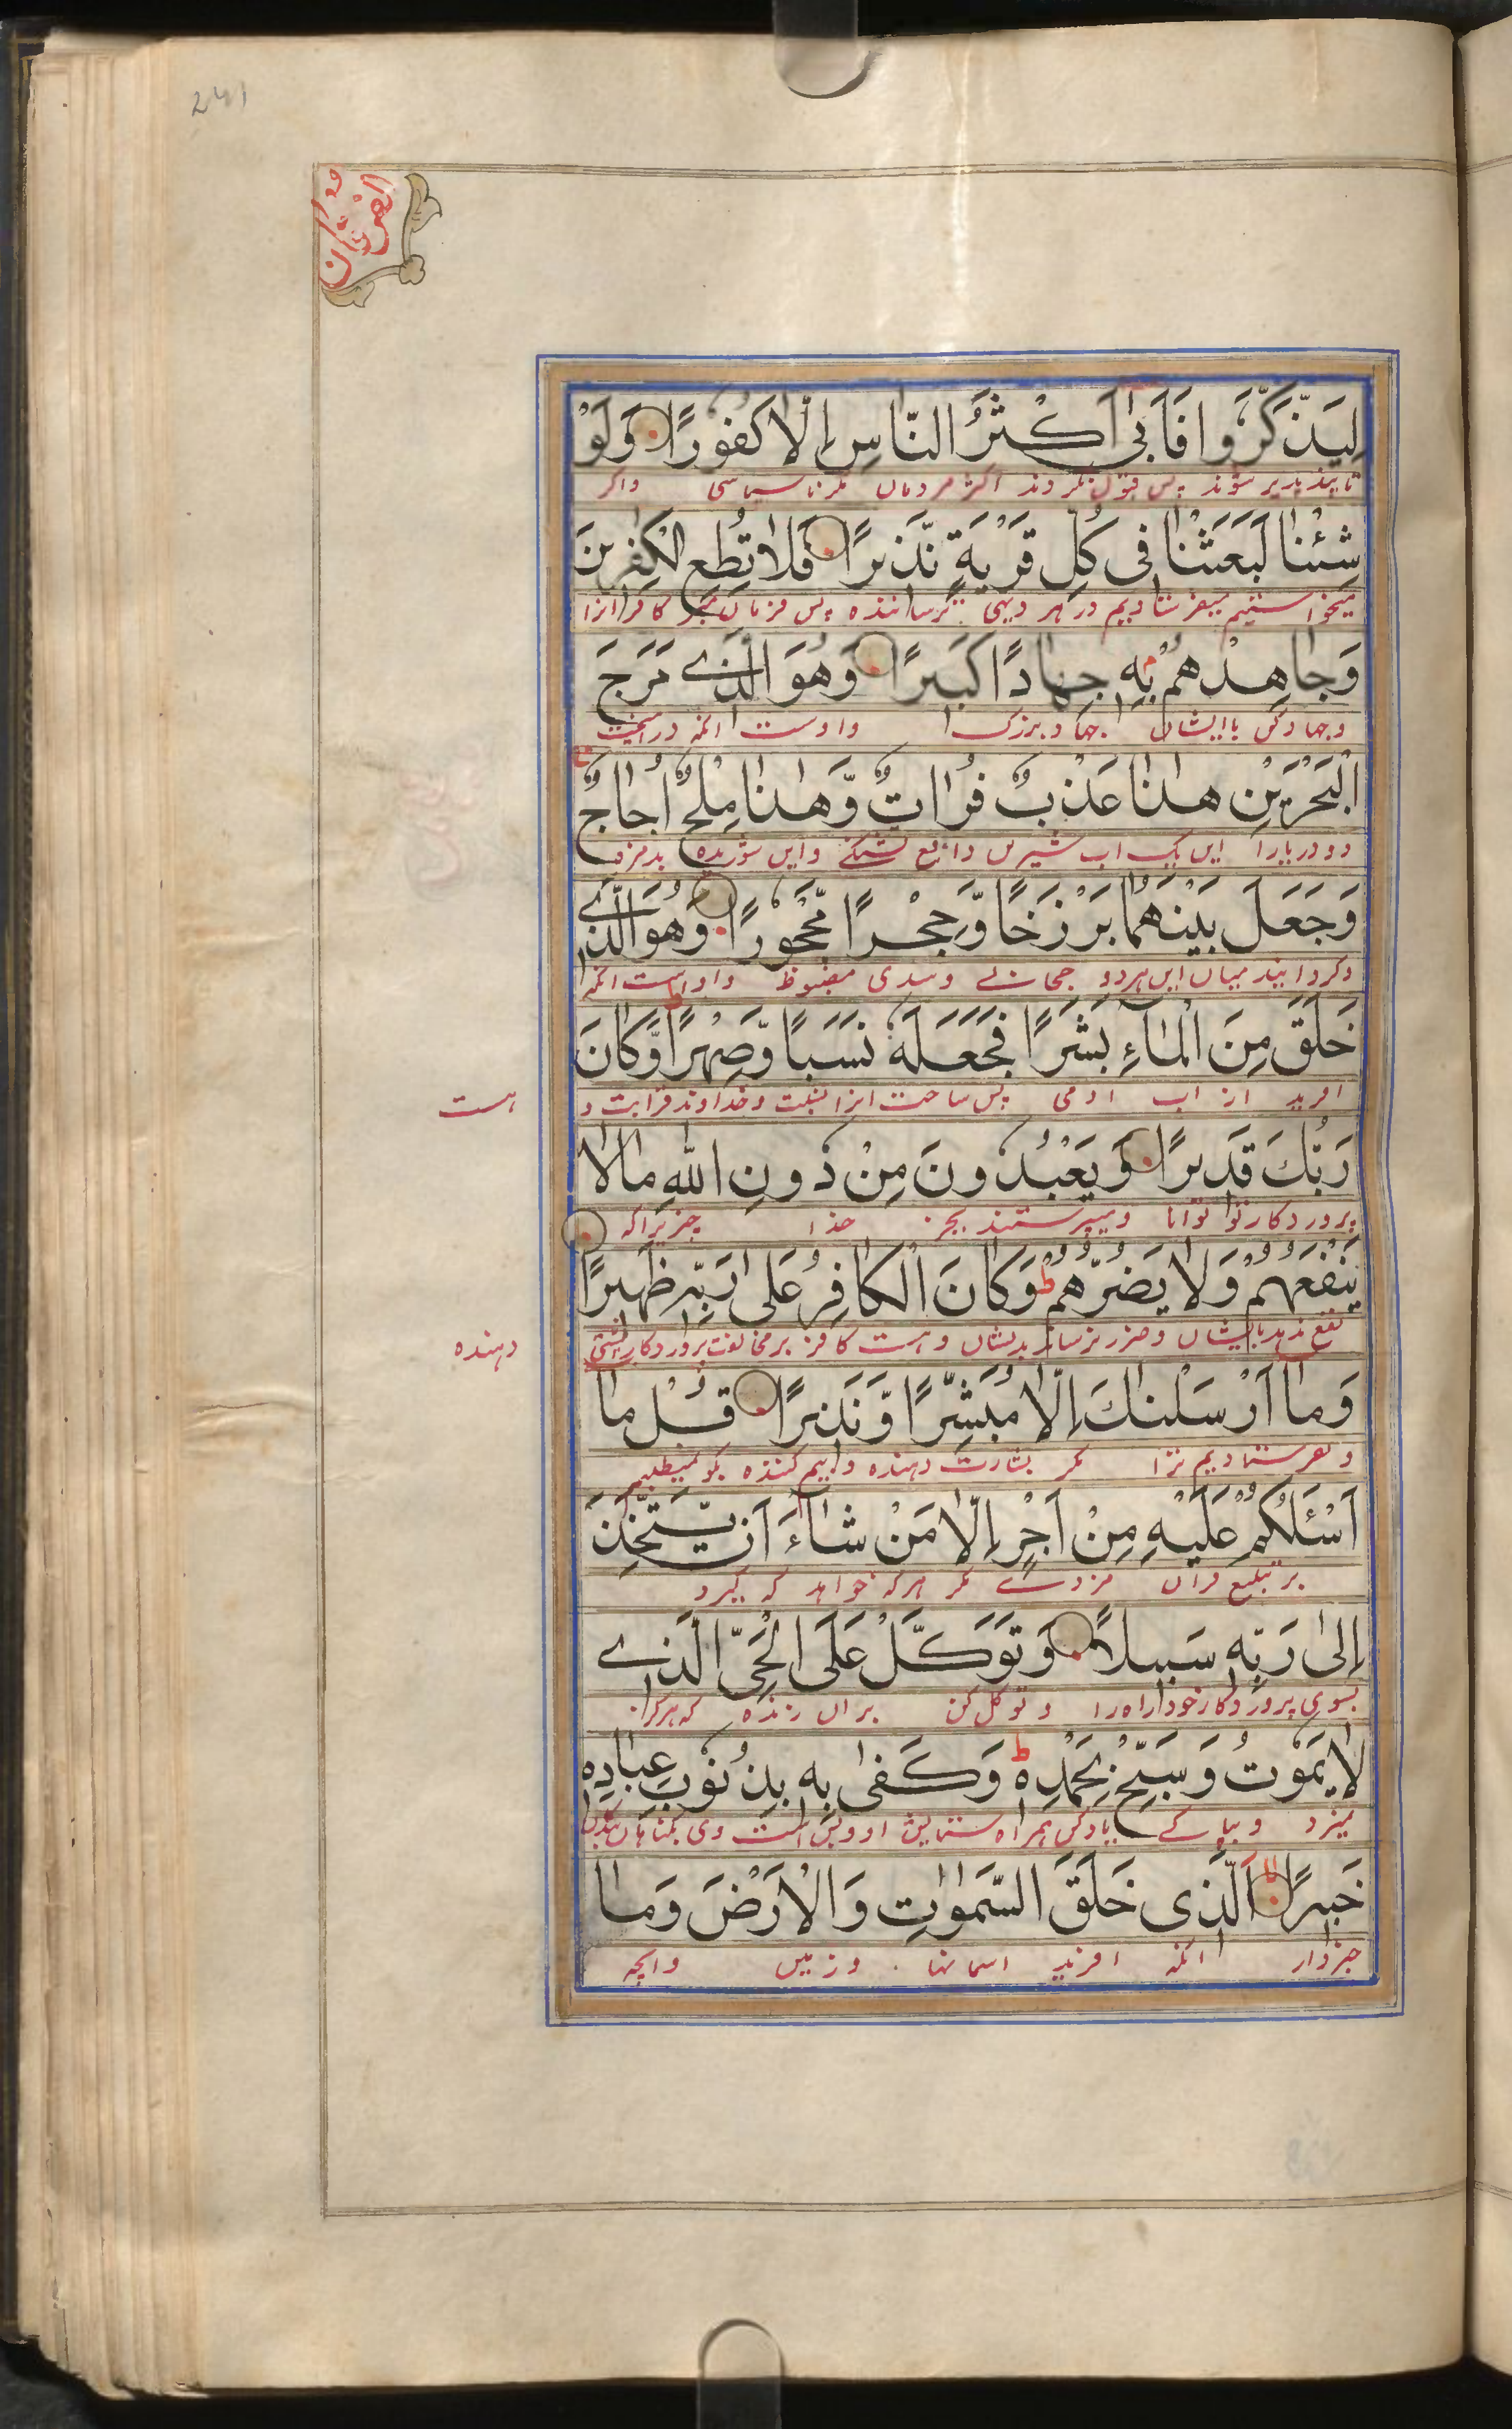 241
الفرقان
لِيَذَّكَّرُوا فَاَبىٰ اَكْثَرُ النَّاسِ اِلَّا كُفُورًا وَلَوْ
تا پندپذیر شوند پس قبول نکردند اکثر مردمان مکر ناسپاسی واکر
شِئْنَا لَبَعَثْنَا فِى كُلِّ قَرْيَةٍ نَّذِيرًا فَلَا تُطِعِ الْكٰفِرِينَ
میخواستیم میفرستادیم در هر دیهی ترساننده پس فرمان مبر کافرانرا
وَجَاهِدْهُمْ بِهٖ جِهَادًا كَبِيرًا وَهُوَ الَّذِے مَرَجَ
وجهاد کن باایشان جهاد بزرک واوست انکه درامیخت
الْبَحْرَيْنِ هٰذَا عَذْبٌ فُرَاتٌ وَّهٰذَا مِلْحٌ اُجَاجٌ
دو دریارا این یک اب شیرین دافع تشنکے واین شوریده بدمزه
وَجَعَلَ بَيْنَهُمَا بَرْزَخًا وَّحِجْرًا مَّحْجُورًا وَهُوَ الَّذِے
وکردانید میان این هردو حجابے وسدی مضبوط واوست انکه
خَلَقَ مِنَ الْمَآءِ بَشَرًا فَجَعَلَهٗ نَسَبًا وَّصِهْرًا ط وَّكَانَ
افرید از اب ادمی پس ساخت انرا نسبت وخداوند قرابت و
هست
رَبُّكَ قَدِيرًا وَيَعْبُدُونَ مِنْ دُونِ اللّٰهِ مَا لَا
پروردکار تو توانا ومیپرستند بجز خدا چیزیراکه
يَنْفَعُهُمْ وَلَا يَضُرُّهُمْ ط وَكَانَ الْكَافِرُ عَلىٰ رَبِّهٖ ظَهِيرًا
نفع ندهد بایشان وضرر نرساند بدیشان وهست کافر بر مخالفت پروردکار پشتی
دهنده
وَمَا اَرْسَلْنَاكَ اِلَّا مُبَشِّرًا وَّنَذِيرًا قُلْ مَا
ونفرستادیم ترا مکر بشارت دهنده وبیم کننده بکو نمیطلبم
اَسْئَلُكُمْ عَلَيْهِ مِنْ اَجْرٍ اِلَّا مَنْ شَآءَ اَنْ يَّتَّخِذَ
بر تبلیغ قران مزدے مکر هرکه خواهد که کیرد
اِلىٰ رَبِّهٖ سَبِيلًا وَتَوَكَّلْ عَلَى الْحَىِّ الَّذِے
بسوی پروردکار خود راه را و توکل کن بران زنده که هرکز
لَا يَمُوتُ وَسَبِّحْ بِحَمْدِهٖ ط وَكَفىٰ بِهٖ بِذُنُوبِ عِبَادِهٖ
نمیرد و بپاکے یادکن همراه ستایش او وبس است وی بکناهان بندکان
خَبِيرًا اَلَّذِى خَلَقَ السَّمٰوَاتِ وَالْاَرْضَ وَمَا
خبردار انکه افرید اسمانها وزمین وانچه